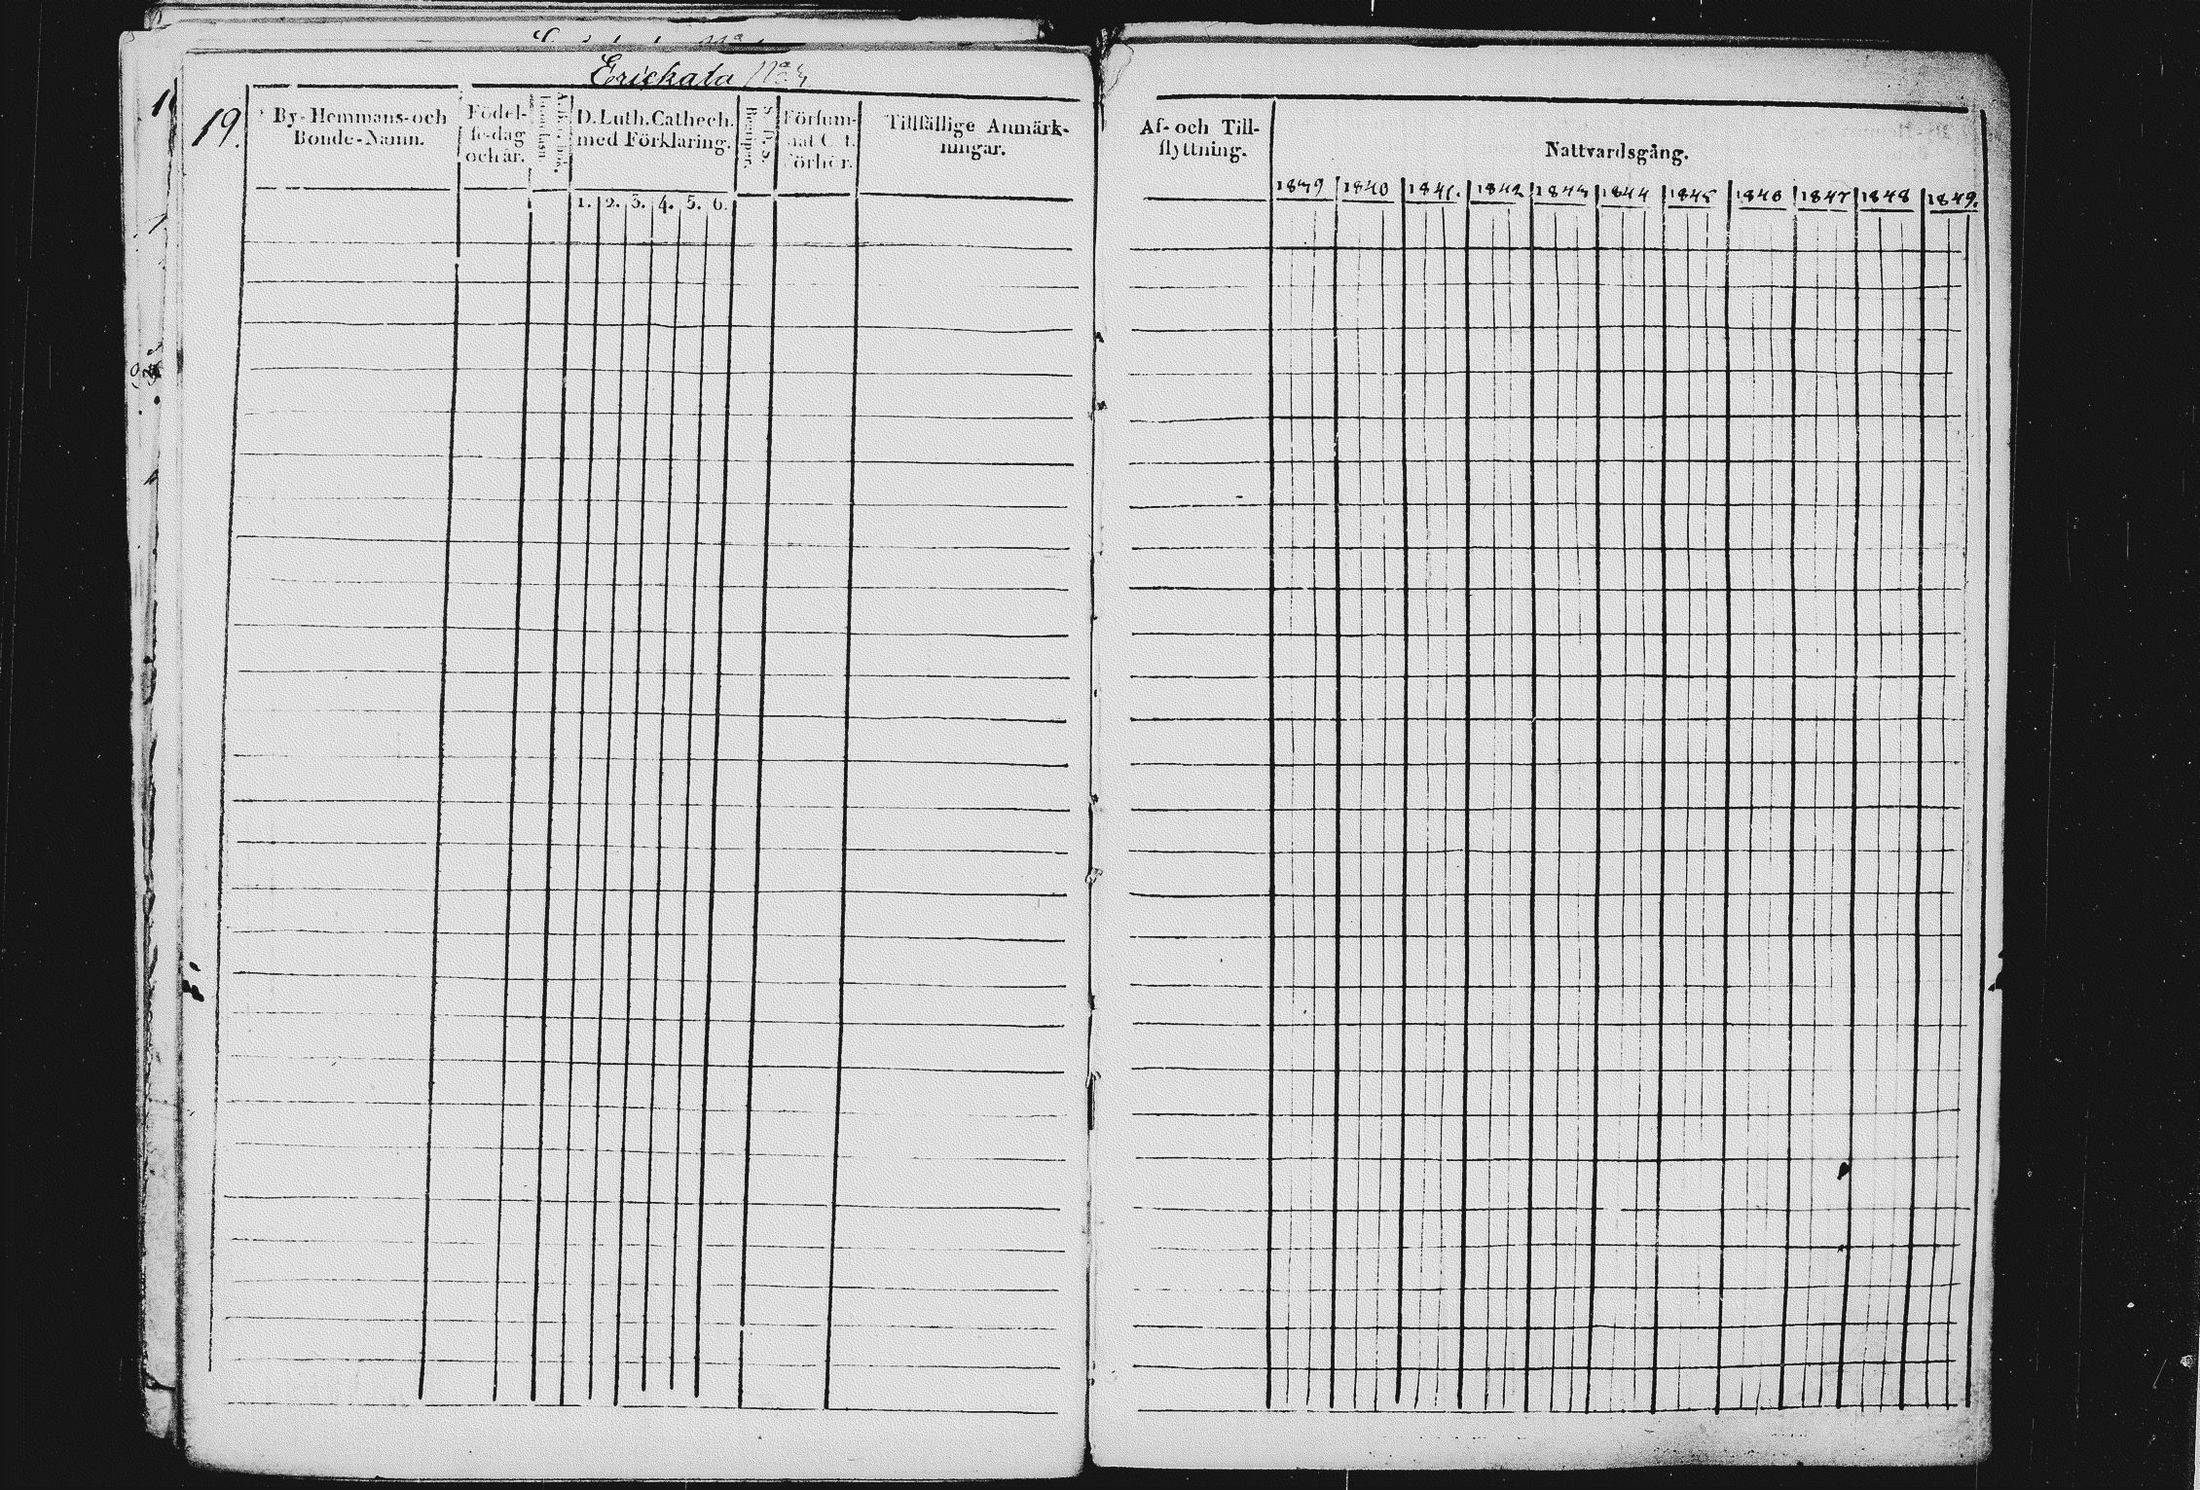 Erickala No 4
19.
By-Hemmans-och
Bonde-Namn.
Födel-
se-dag
och år.
D. Luth. Cathech.
med Förklaring.
1. 2. 3. 4. 5. 6.
Försum-
mat C. f.
förhör.
Tillfällige Anmärk-
ningar.
Af- och Till-
flyttning.
Nattvardsgång.
1839 1840 1841. 1842 1843 1844 1845 1846 1847 1848 1849.